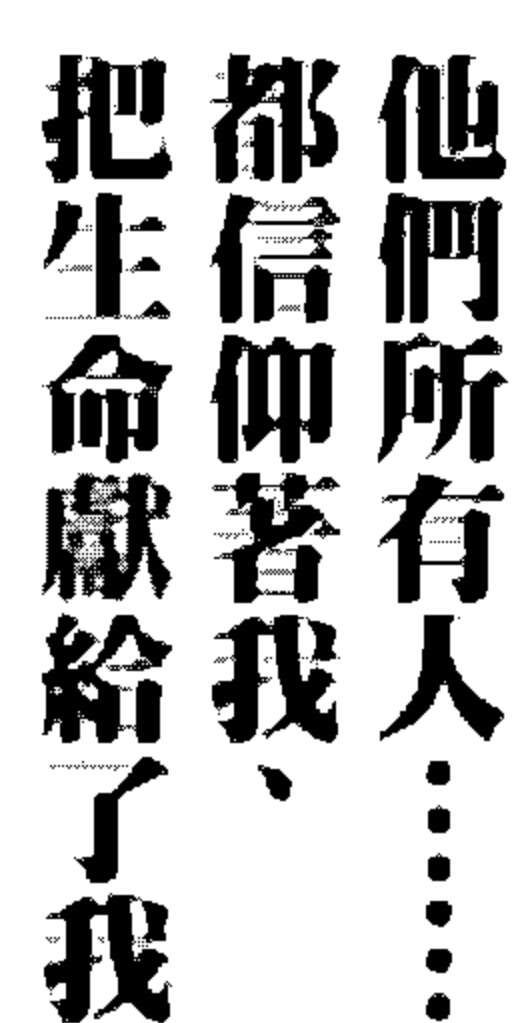 他們所有人……
都信仰著我、
把生命獻給了我